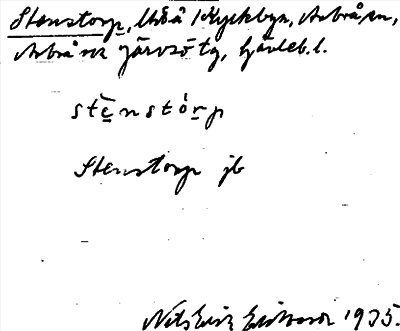 Stenstorp, Udå i Kyrkbyn, Arbrå sn,
Arbrå ock Järvsö tg, Gävleb. l.
stènstórp
Stenstorp jb
Nils Erik Eriksson 1935.